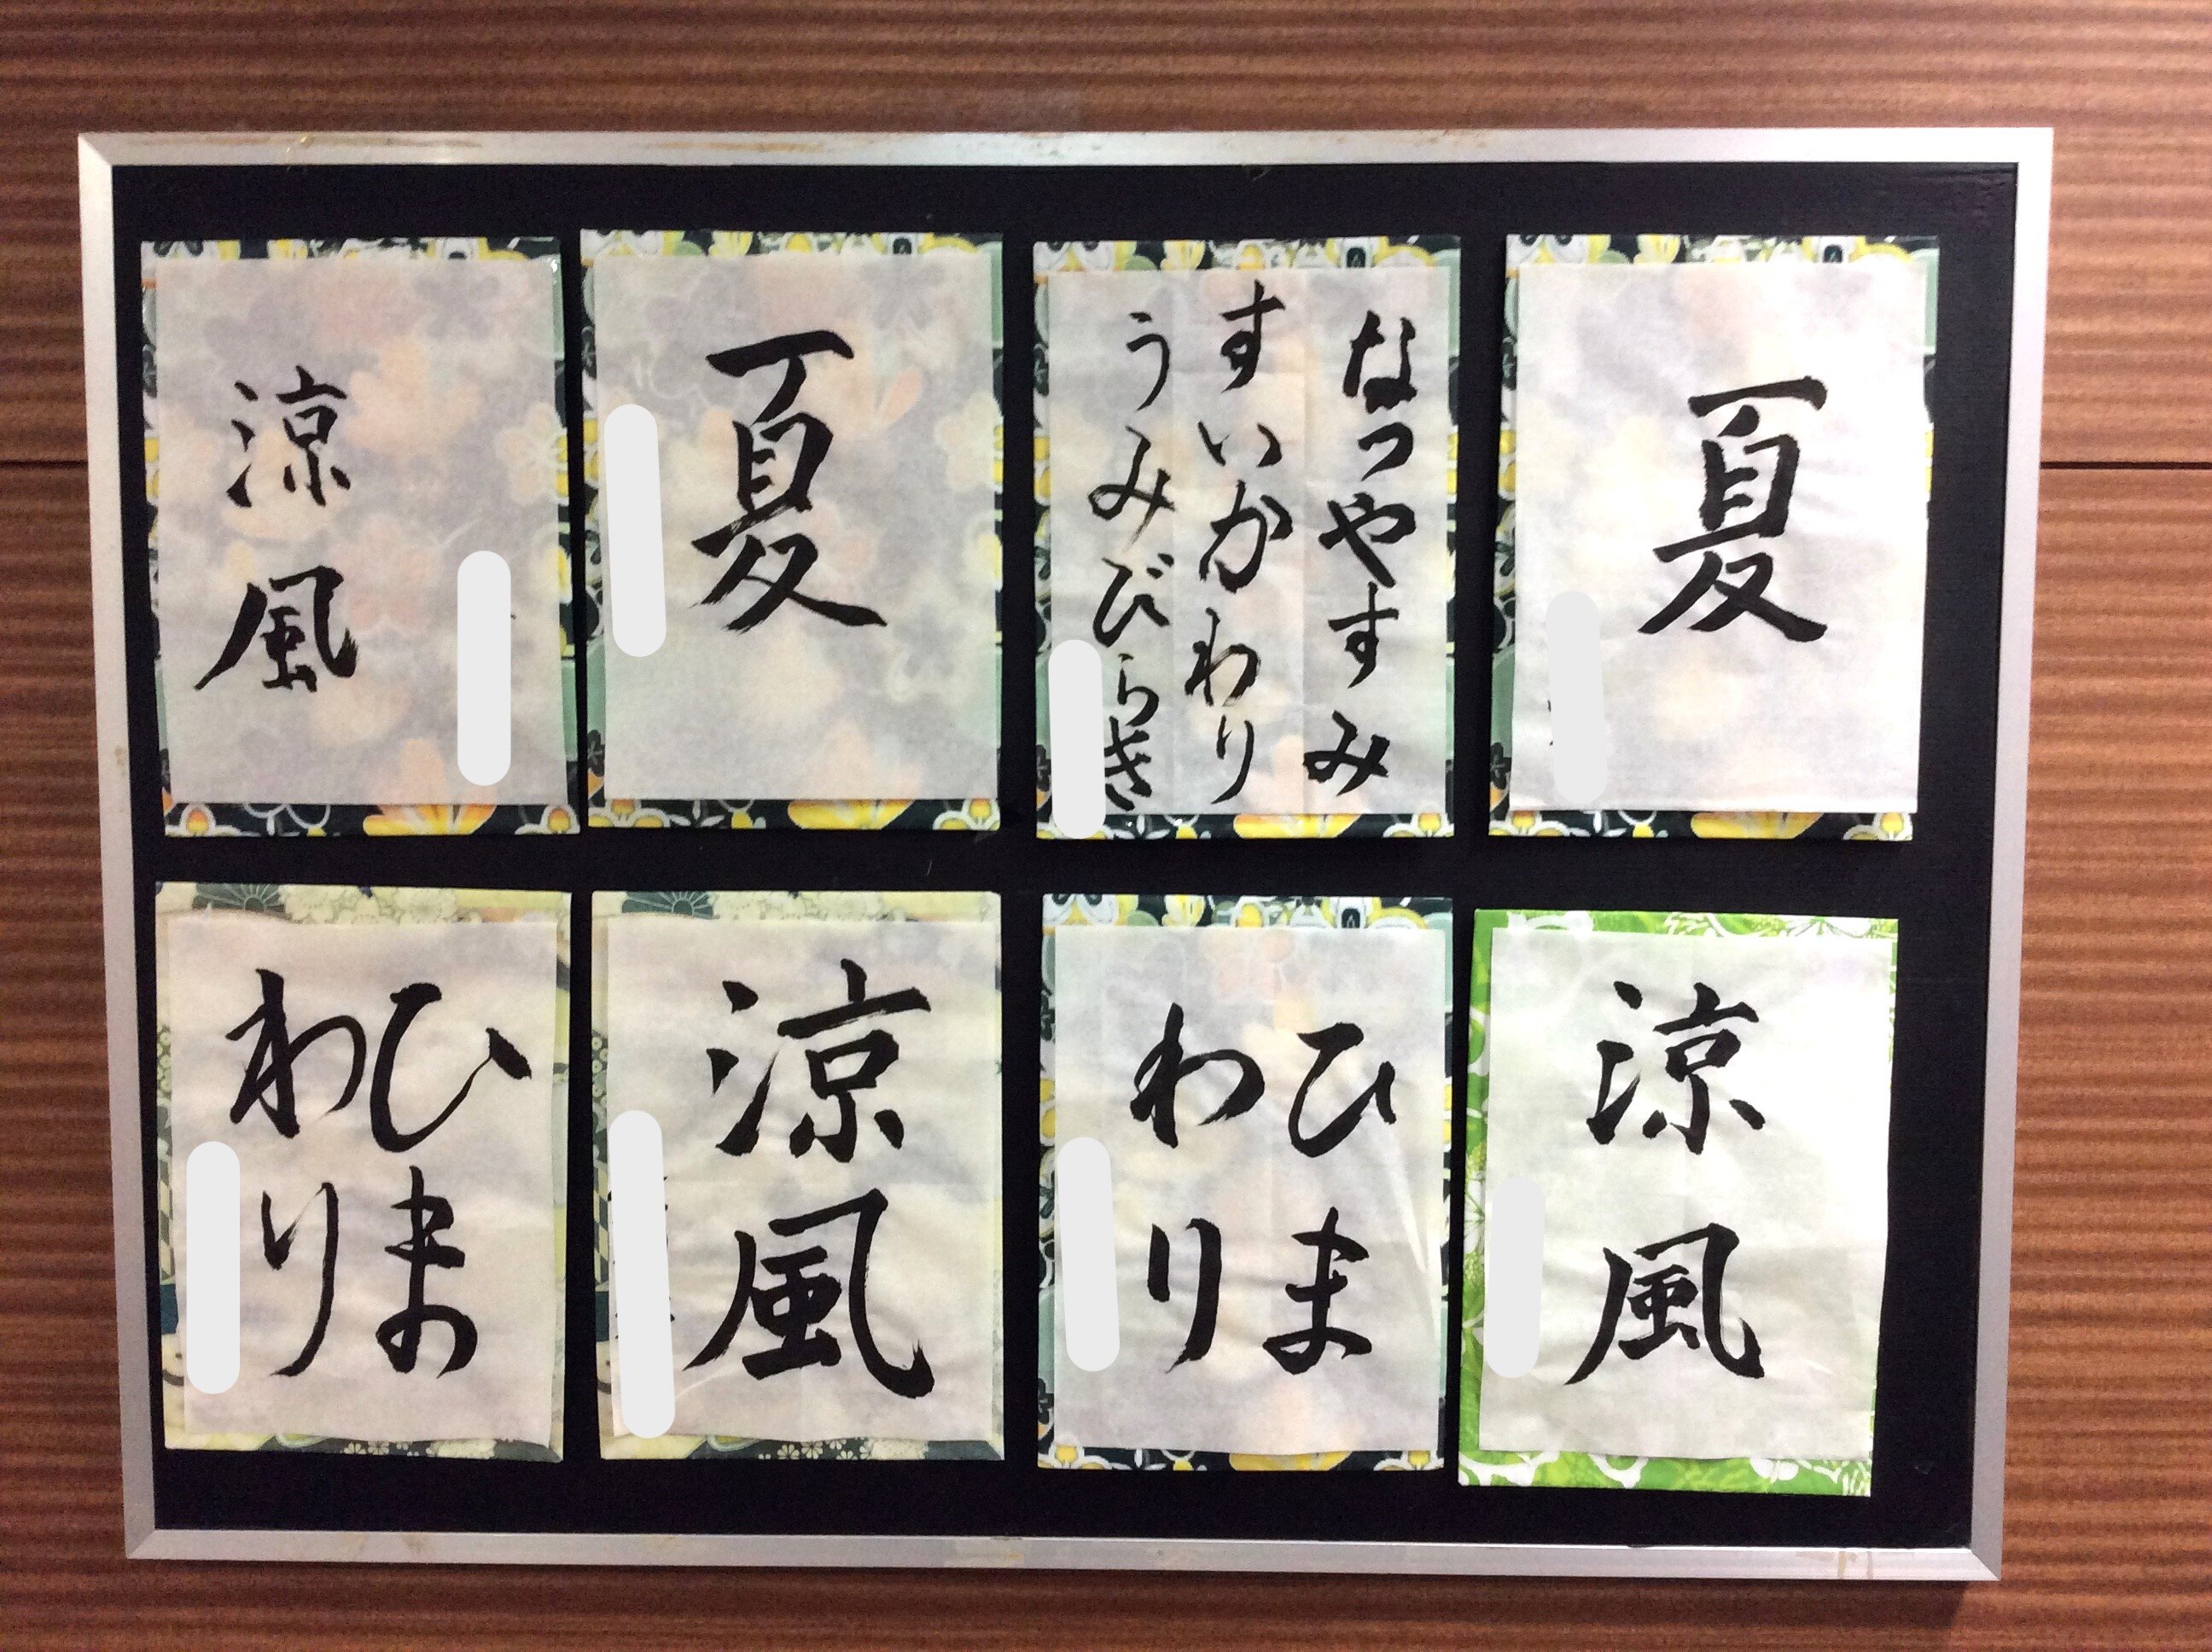 夏
なつやすみ
すいかわり
うみびらき
夏
涼風
涼風
ひま
わり
涼風
ひま
わり